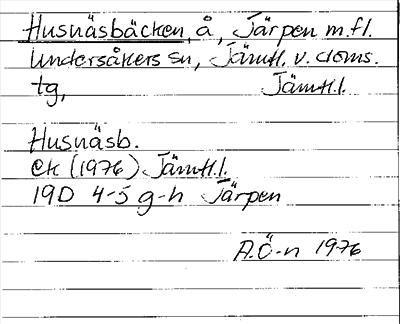 Husnäsbäcken, å, Järpen m.fl.
Undersåkers sn, Jämtl. v. doms.
tg, Jämtl.l.
Husnäsb.
ek (1976) Jämtl.l.
19D 4-5 g-h Järpen
A.Ö-n 1976